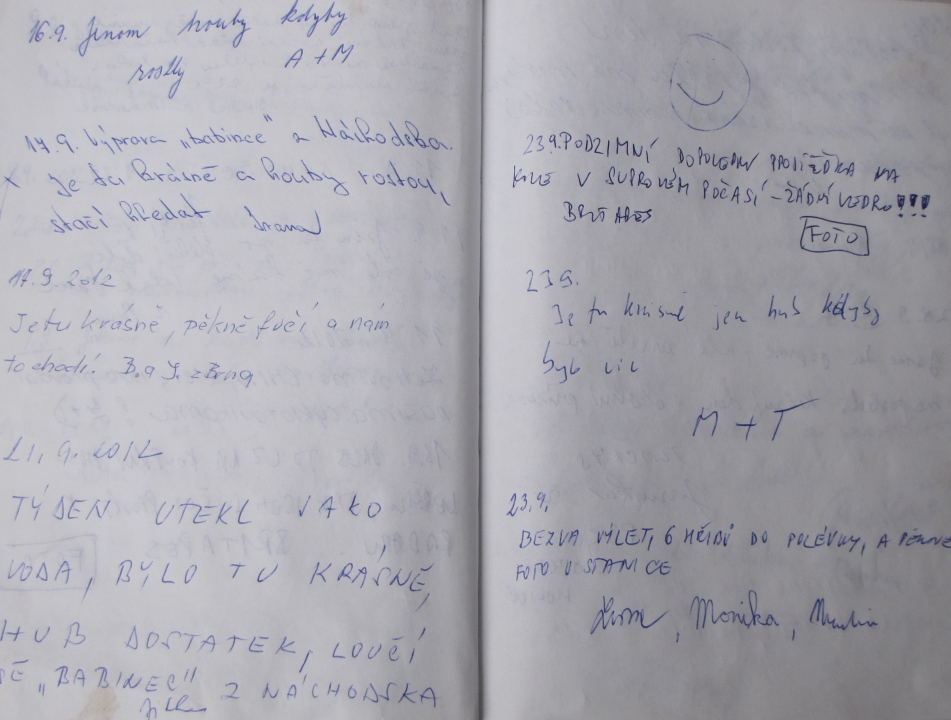 16.9. Jenom houby kdyby
rostly A+M
17.9. Výprava „babince" z Náchodska.
Je tu krásně a houby rostou,
stačí hledat Ivana
17.9.2012
Je tu krásně, pěkně fučí a nám
to chodí. B. a J. z Brna
21.9.2012
TÝDEN UTEKL JAKO
VODA, BYLO TU KRÁSNĚ,
HUB DOSTATEK, LOUČÍ
SE „BABINEC"
Z NÁCHODSKA
23.9. PODZIMNÍ DOPOLEDNÍ PROJÍŽĎKA NA
KOLE V SUPROVÉM POČASÍ - ŽÁDNÍ VEDRO!!!
FOTO
23.9.
Je tu krásně jen hub kdyby
bylo víc
M + T
23.9.
BEZVA VÝLET, 6 HŘIBŮ DO POLÉVKY, A PĚKNÉ
FOTO V STANICE
Monika,